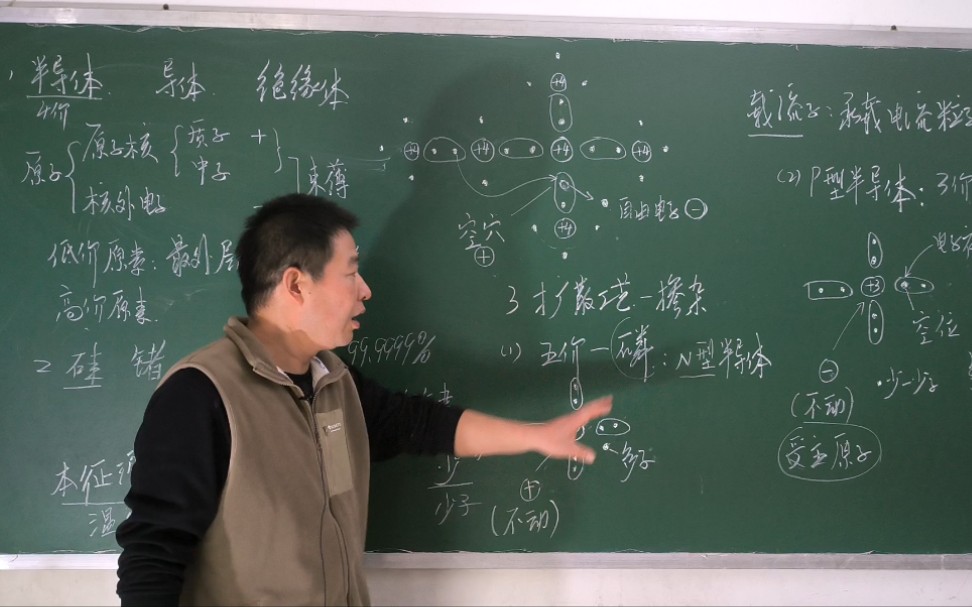 1 半导体 导体 绝缘体
4价
原子 原子核 质子 +
中子
核外电子 -
束薄
低价原素:最外层
高价原素
2 硅 锗
99.9999%
本征
温
少子
+4
+4 +4 +4 +4
+4
空穴
+
自由电子 -
3 扩散工艺一掺杂
(1) 五价一磷:N型半导体
多子
+
(不动)
载流子:承载电流粒子
(2) P型半导体:3价
+3
空位
-
(不动)
少一少子
受主原子